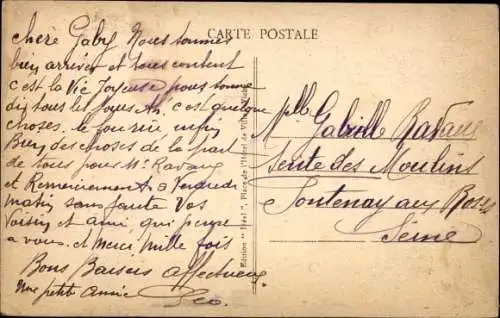 CARTE POSTALE
chère Gaby Nous sommes
bien arrivés et tous content
c'est la Vie Joyeuse nous somme
dis tous les joyes Ah. c'est quelque
choses. le fou rire enfin
Bien des choses de la part
de tous pour Mr Ravaux
et Remerciement A Vendredi
Matin sans faute Vos
Voisin et ami, qui pense
a vous. et Merci Mille fois
Bons Baisers affectueux
Une petit amie Géo.
Edition "Idéal", Place de l'Hôtel de Ville
Mlle Gabrielle Ravaux
Sente des Moulins
Fontenay aux Roses
Seine